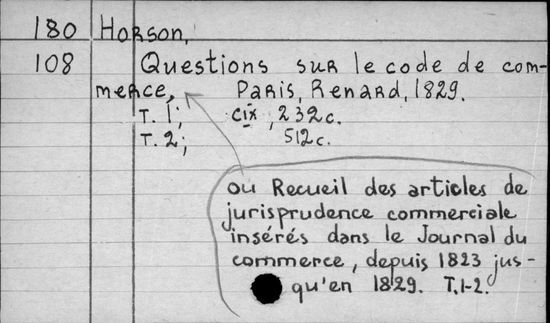 180 Horson,
108 Questions sur le code de com-
merce, Paris, Renard, 1829.
T. 1; cix, 232c.
T. 2; 512c.
ou Recueil des articles de
jurisprudence commerciale
insérés dans le Journal du
commerce, depuis 1823 jus-
qu'en 1829. T.1-2.